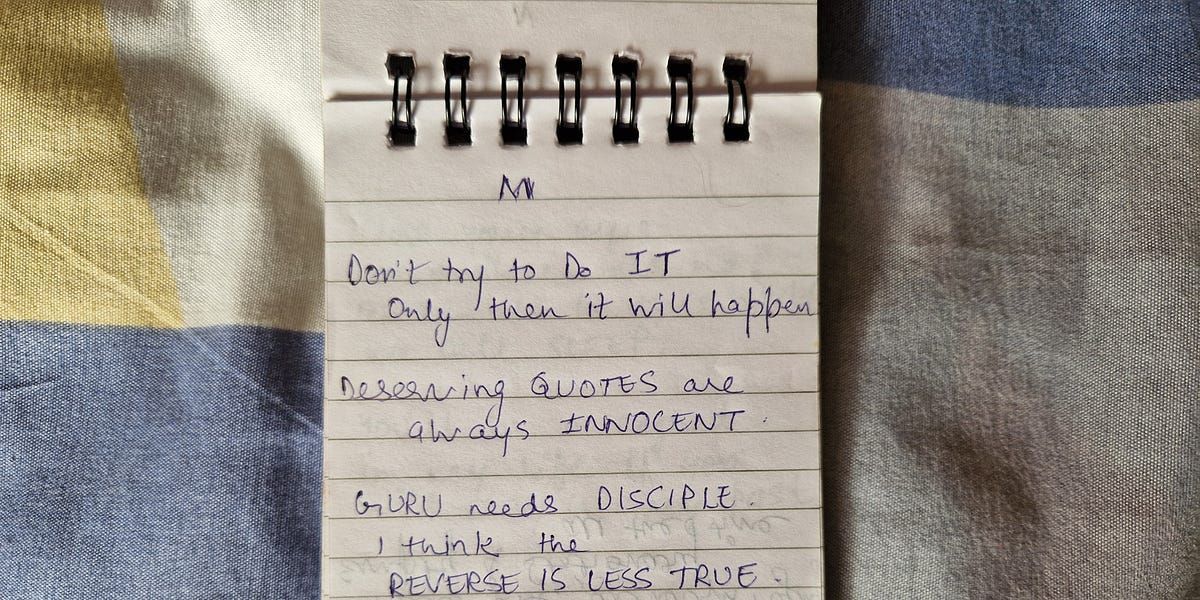 Don't try to Do IT
Only then it will happen
Deserving QUOTES are
always INNOCENT.
GURU needs DISCIPLE.
I think the
REVERSE IS LESS TRUE.